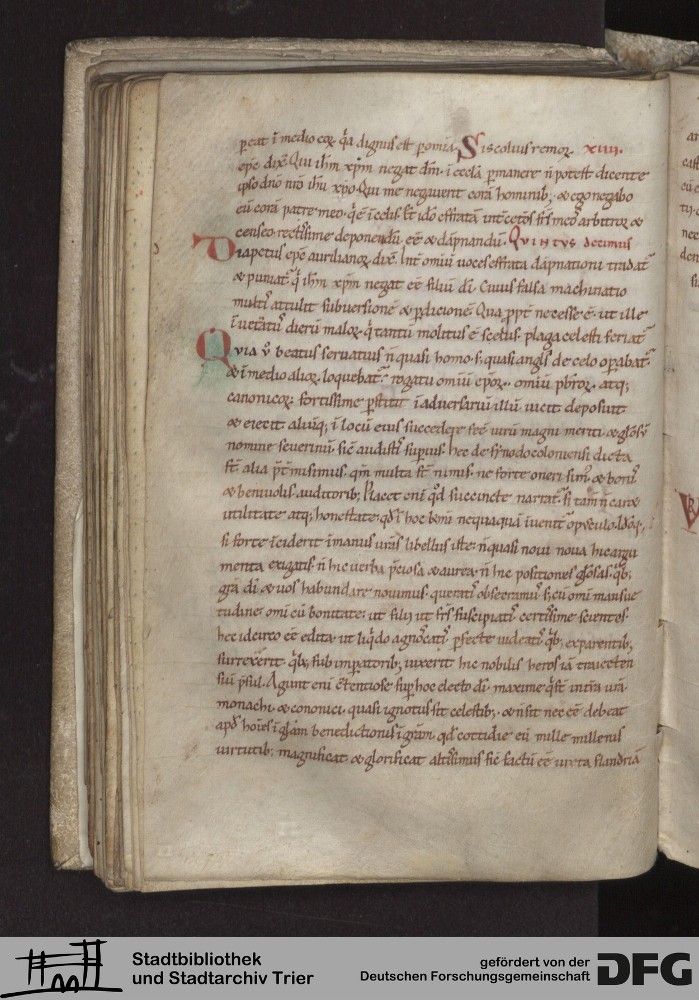 peat ī medio eoꝝ q̄a dignus est ꝑ omia. Siscolius remoꝝ XIIII.
epc̄ dix̄. Qui ihm̄ xpm̄ negat dm̄. ī eccl̄a ꝑmanere n̄ potest dicente
ipso dn̄o nr̄o ihu xpo. Qui me negauerit corā hominib; & ego negabo
eū corā patre meo. q̄ ē ī celis.
censeo rectissime deponendū eē & dāpnandū. Quintus decimus
Diapetus epc̄ aurilianoꝝ dix̄. omiū uoces effrata dāpnationi tradat᷑
& puniat᷑ q̄ ihm̄ xpm̄ negat eē filiū di. Cuius falsa machinatio
multis attulit subuersionē & ꝑdicionē. Qua ꝓpt̄ necesse ē. ut ille
dierū maloꝝ. q̄ tantū molitus ē scelus. plaga celesti feriat᷑
Quia ū beatus seruatius n̄ quasi homo. s; quasi angl̄s de celo oꝑabat᷑.
& ī medio alioꝝ loquebat᷑. rogatu omiū ep̄oꝝ. omiū pb̄roꝝ. atq;
canonicoꝝ. fortissime ꝑstitit. ī aduersariū illū uicit deposuit
& eiecit aliūq; ī locū eius succedere fec̄ uirū magni meriti & gl̄osū
nomine seuerinū. sic̄ audistis suꝑius. hec de synodo coloniensi dicta
st̄ alia p̄t̄misimus. qm̄ multa st̄ nimis. ne forte oneri sim᷑ & bonis
& beniuolis auditorib; Placet eni q̄d succincte narrat᷑. si tam̄ n̄ careat
utilitate atq; honestate. qd̄ ī hoc nequaquā īuenit᷑ opusculo.
si forte īciderit ī manus ur̄as libellus iste. n̄ quasi noui noua hic argu
menta exigatis. n̄ hic uerba p̄ciosa & aurea. n̄ hic positiones gl̄osas. q̄b;
gr̄a di & uos habundare nouimus. querat᷑ obsecramus. s; cū omi mansue
tudine. omi cū bonitate. ut filii ut frs̄ suscipiat᷑. certissime scientes.
hec idcirco eē edita. ut liq̄do agnoscat᷑. ꝑfecte uideat᷑. q̄b; ex parentib;
surrexerit. q̄b; sub imꝑatorib; uixerit hic nobilis heros iā traiecten
sui p̄sul. Agunt eni suꝑ hoc electo di. maxime q̄ st̄ intra
monachi. & cononici. quasi ignotus sit celestib;. & nisit nec eē debeat
apd̄ hoīes ī gl̄am benedictionis ī gr̄am. qd̄ cottidie eū mille millenis
uirtutib; magnificat & glorificat altissimus sic̄ factū eē iuxta flandriā
Stadtbibliothek
und Stadtarchiv Trier
gefördert von der
Deutschen Forschungsgemeinschaft
DFG